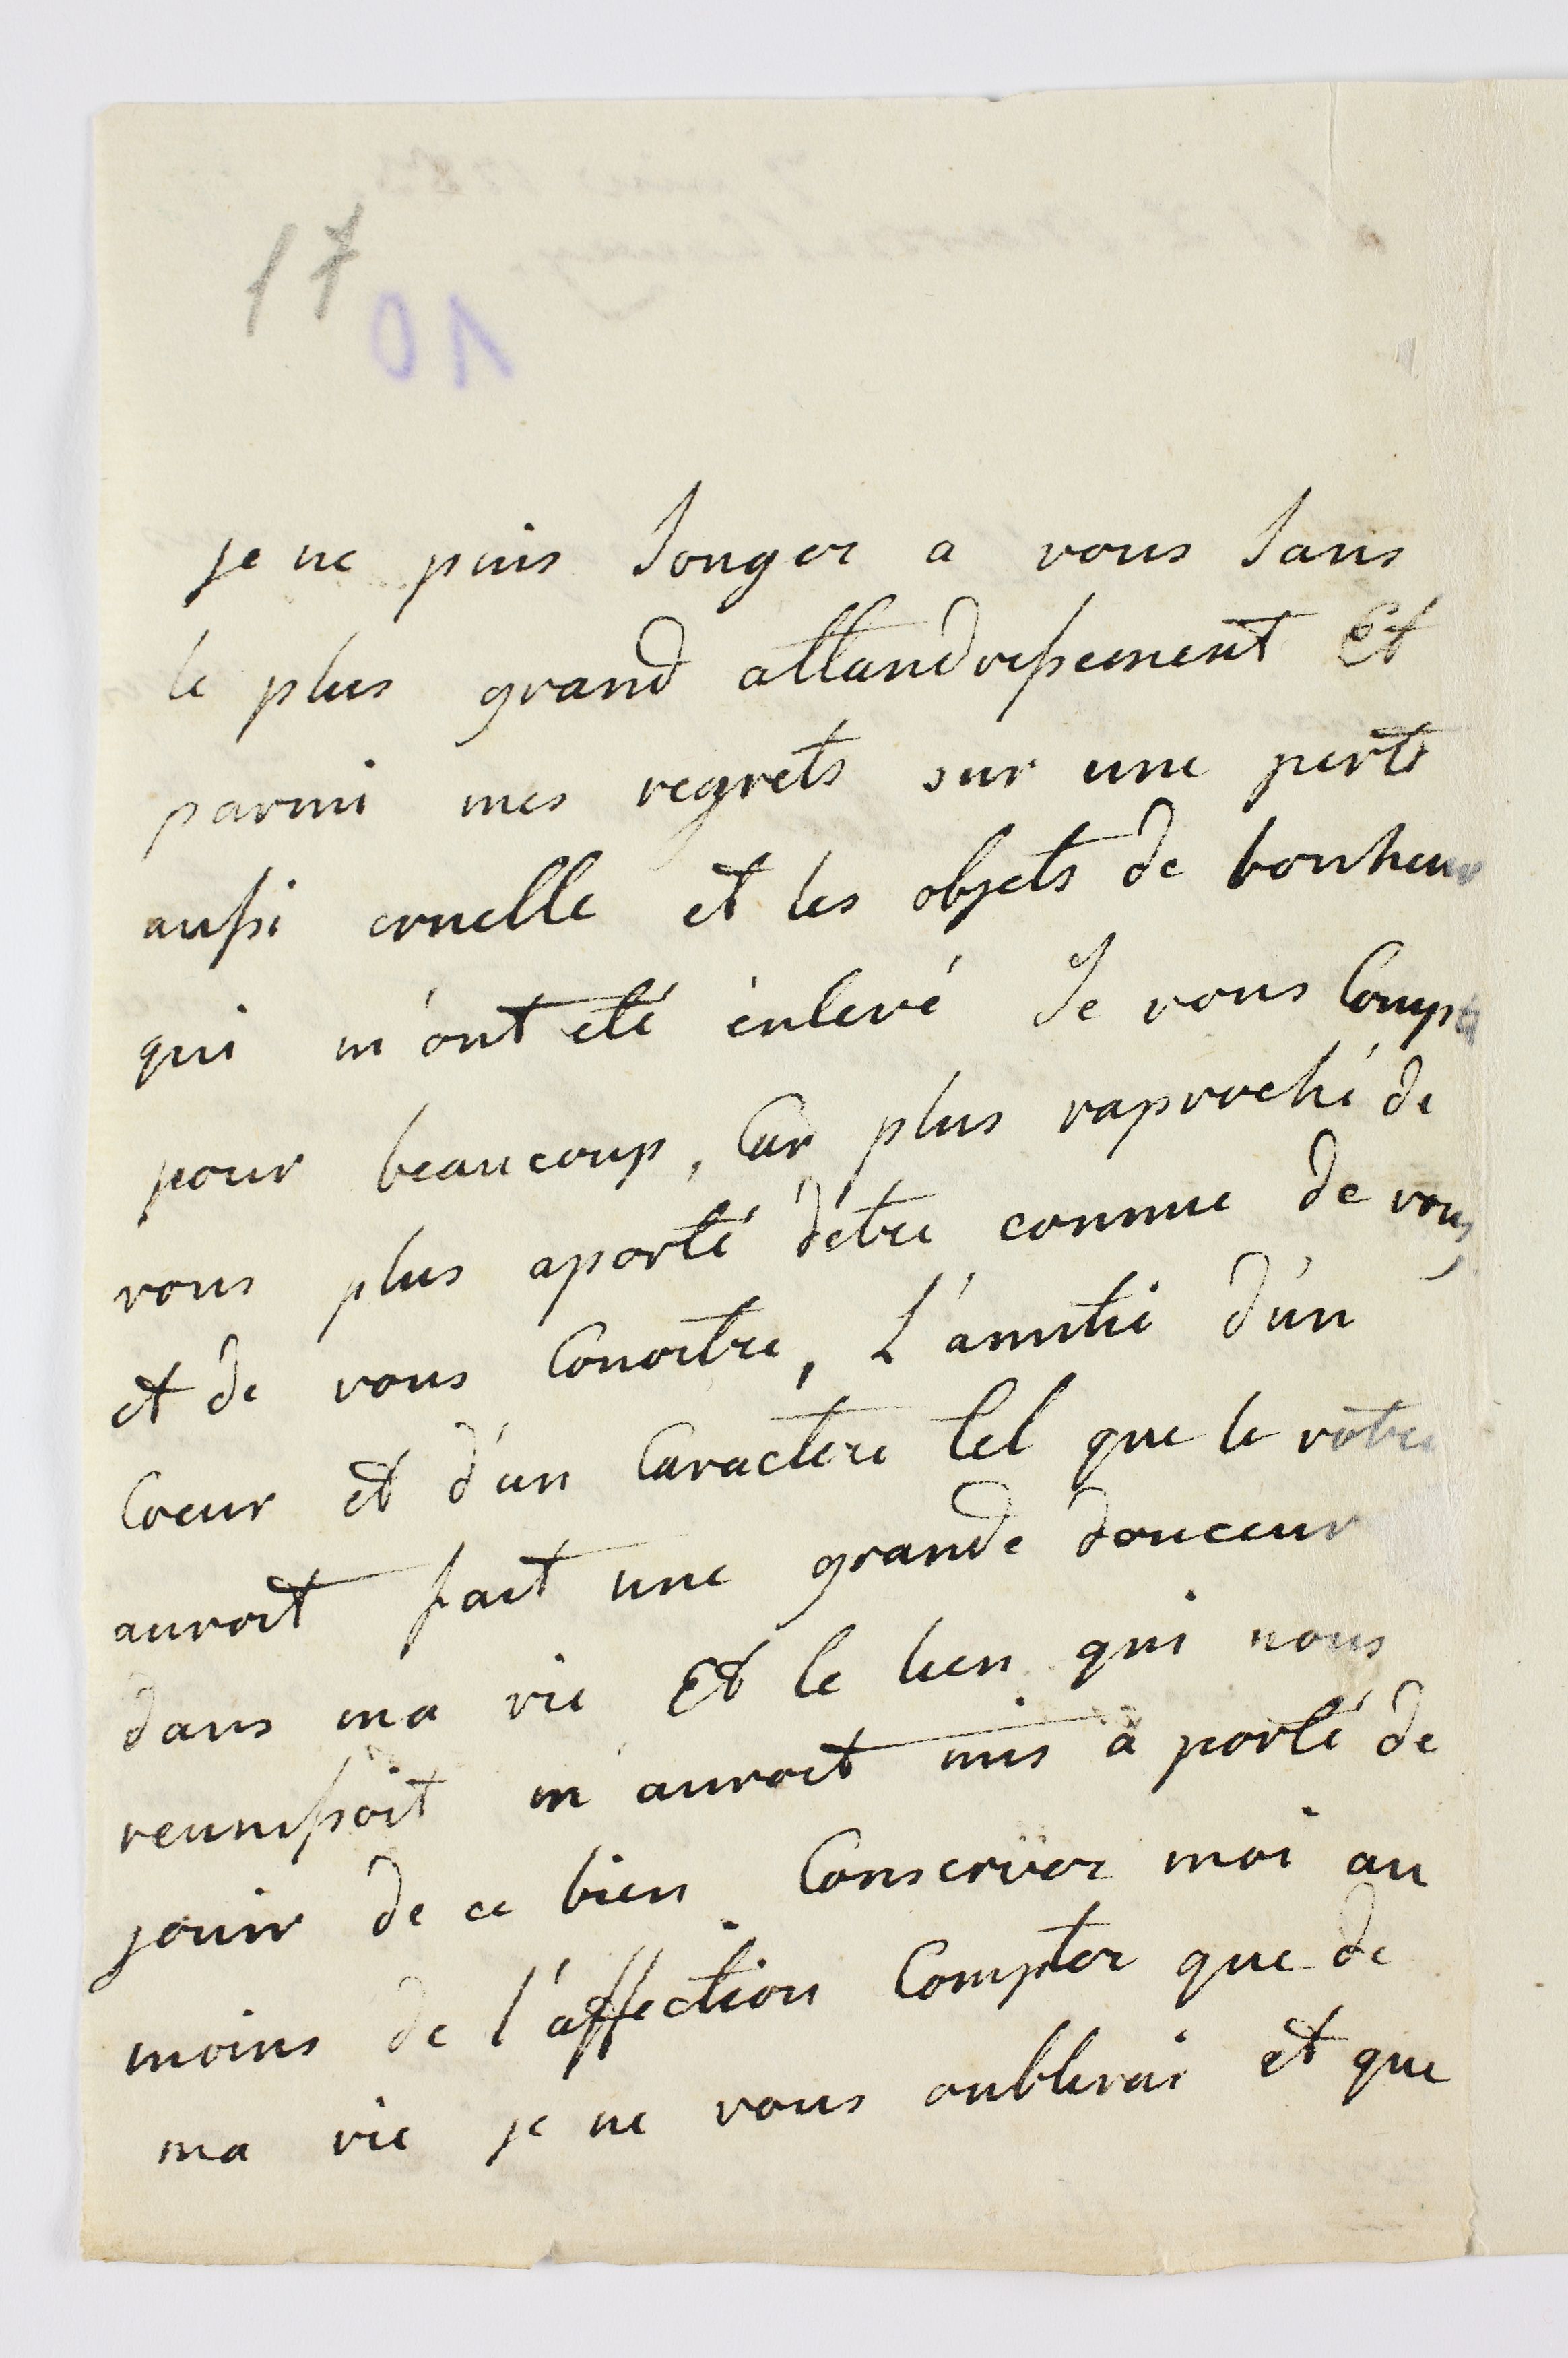 17
10
je ne puis songer a vous sans
le plus grand attandrissement Et
parmi mes regrets sur une perte
aussi cruelle et les objets de bonheur
qui m'ont eté enlevé Je vous Compte
pour beaucoup, Car plus raproché de
vous plus aporté d'etre connue de vous
et de vous Conoitre, L'amitié d'un
Coeur et d'un Caractere tel que le votre
auroit fait une grande douceur
dans ma vie Et le lien qui nous
reunissoit m'auroit mis à porté de
jouir de ce bien Conserver moi au
moins de l'affection Compter que de
ma vie je ne vous oublirai et que